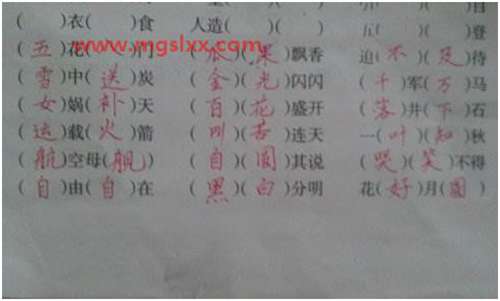 ( )衣( )食 人造( )( ) 五( )( )登
(五)花( )门 (瓜)(果)飘香 迫(不)(及)待
www.mgslxx.com
(雪)中(送)炭 (金)(光)闪闪 (千)军(万)马
(女)娲(补)天 (百)(花)盛开 (落)井(下)石
(运)载(火)箭 (叫)(苦)连天 一(叶)(知)秋
(航)空母(舰) (自)(圆)其说 (哭)(笑)不得
(自)由(自)在 (黑)(白)分明 花(好)月(圆)